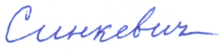 Синкевич